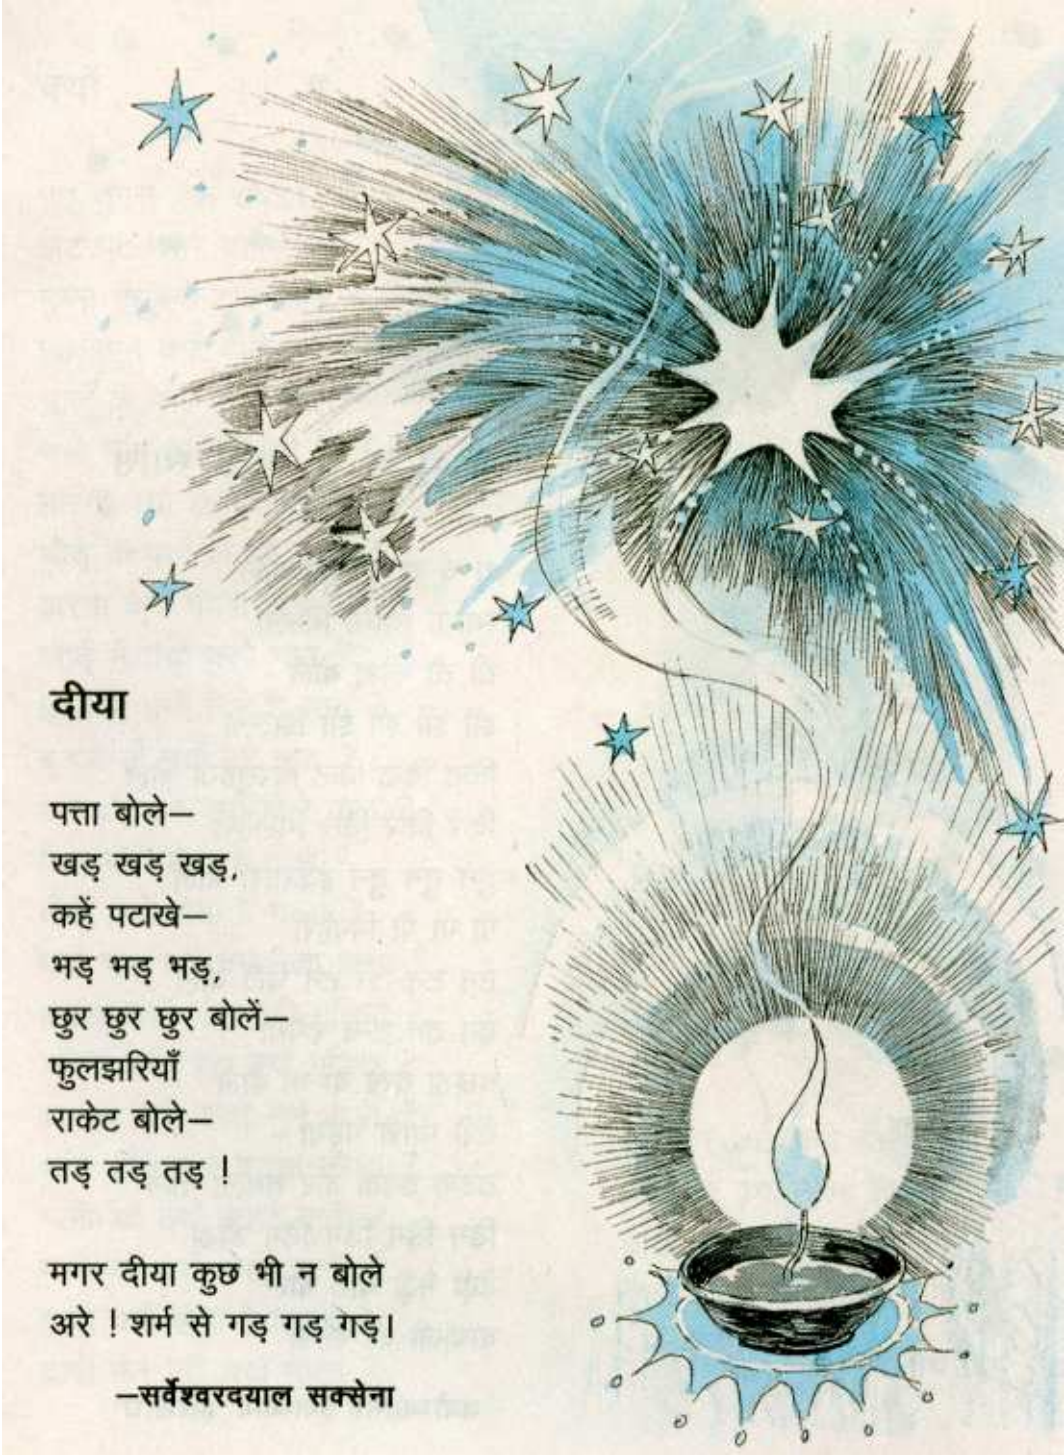 दीया
पत्ता बोले—
खड़ खड़ खड़,
कहें पटाखे—
भड़ भड़ भड़,
छुर छुर छुर बोलें—
फुलझरियाँ
राकेट बोले—
तड़ तड़ तड़ !
मगर दीया कुछ भी न बोले
अरे ! शर्म से गड़ गड़ गड़।
—सर्वेश्वरदयाल सक्सेना